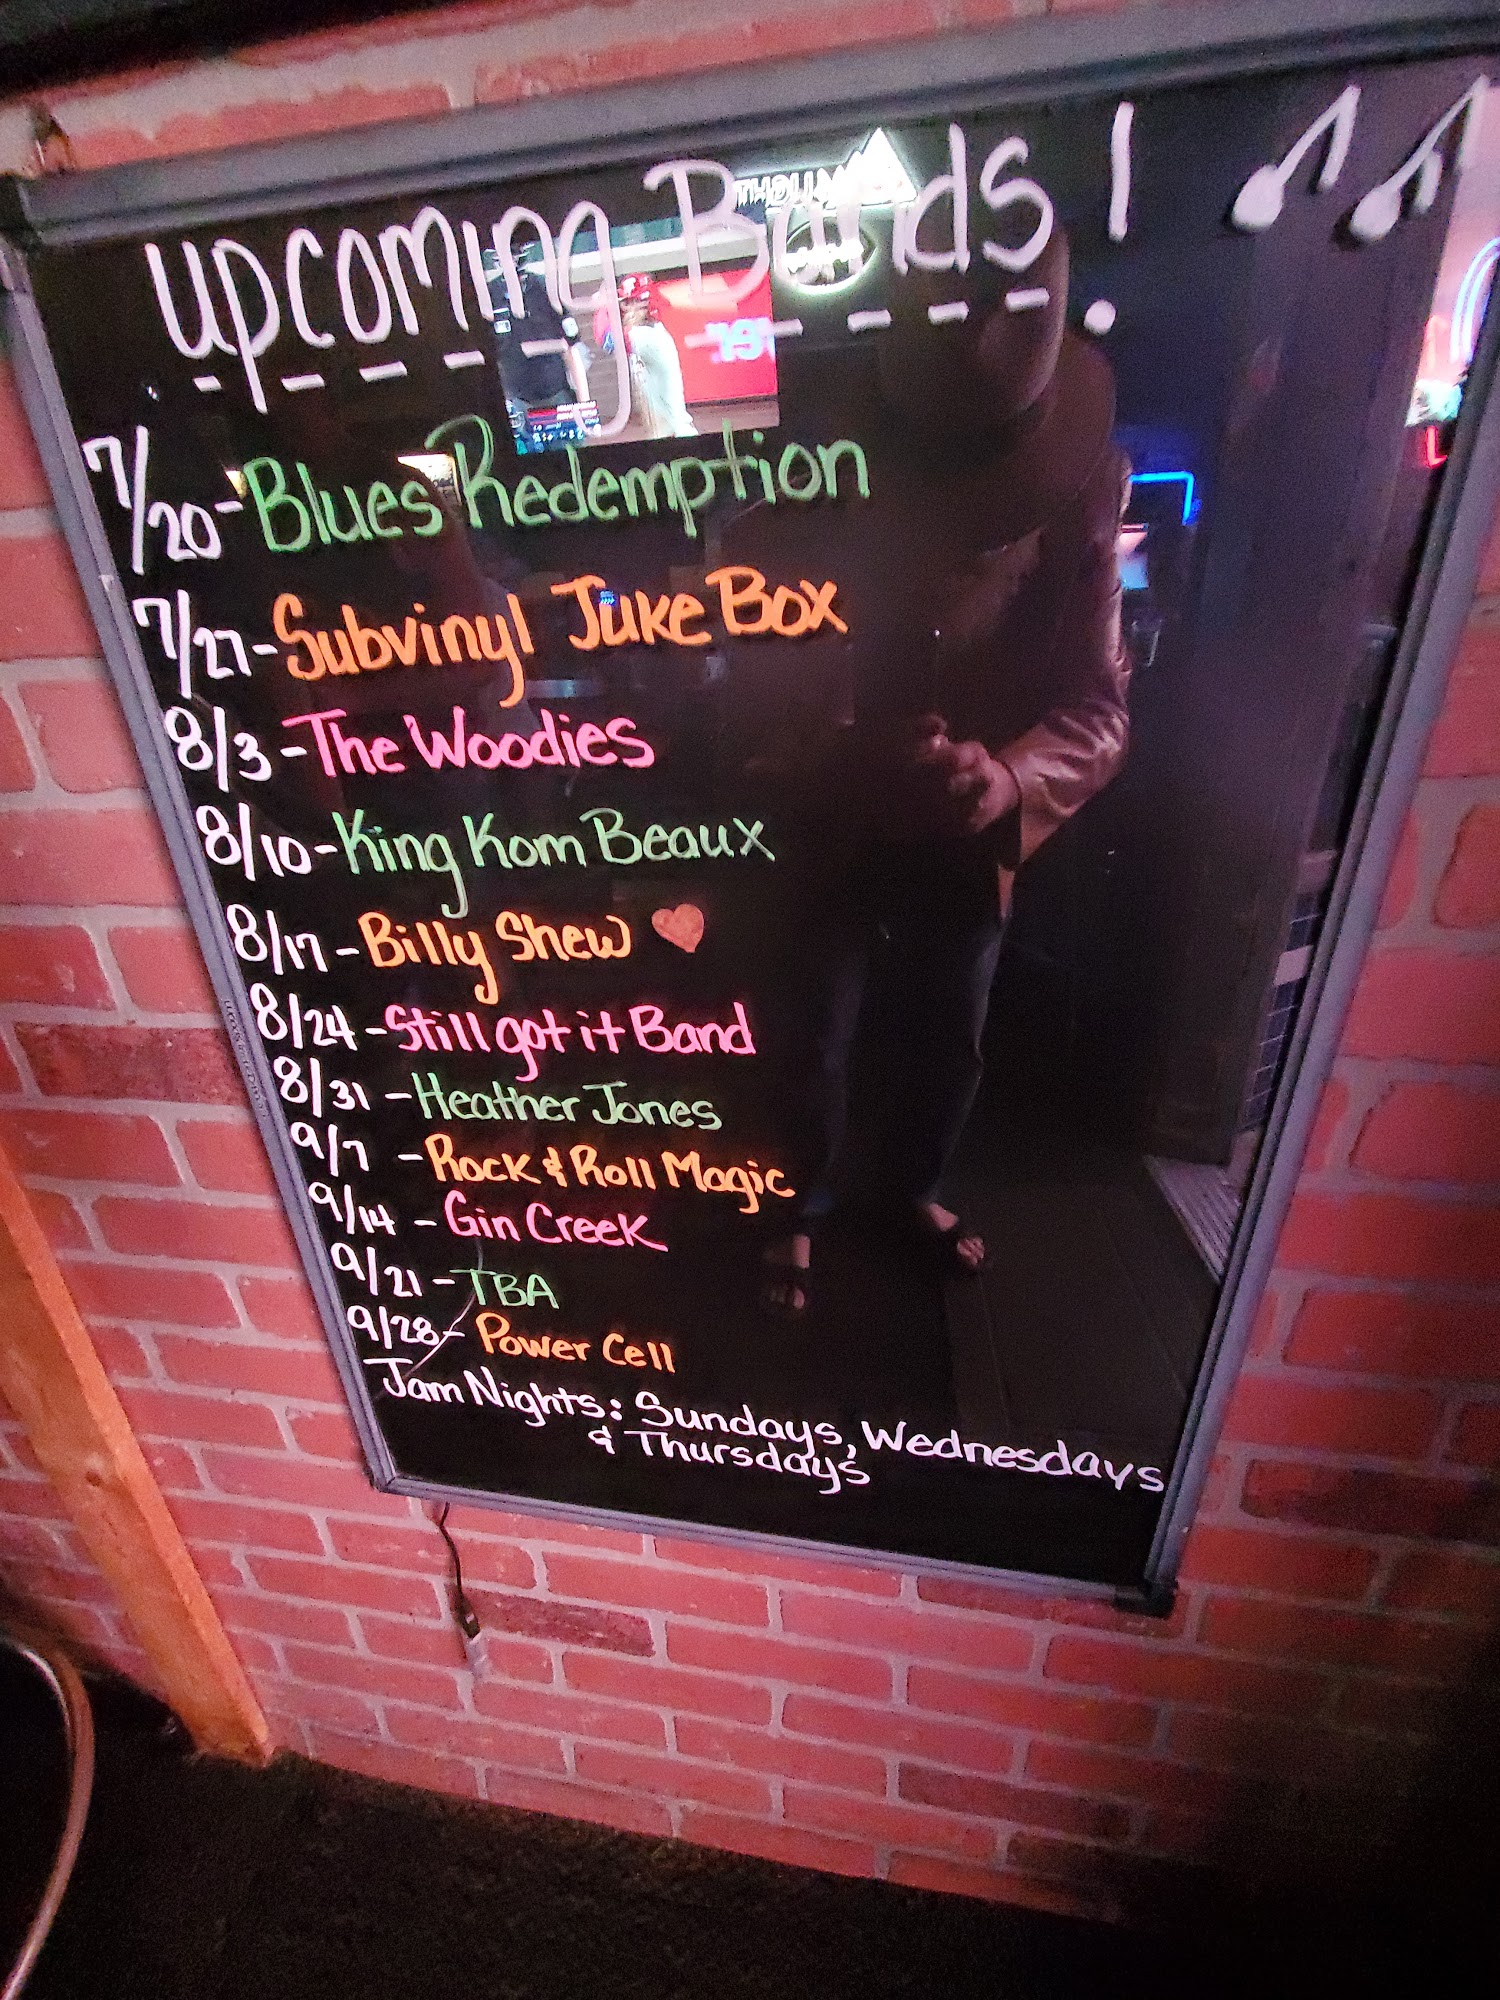 upcoming Bands!
7/20 - Blues Redemption
7/27 - Subvinyl Juke Box
8/3 - The Woodies
8/10 - King Kom Beaux
8/17 - Billy Shew
8/24 - Still got it Band
8/31 - Heather Jones
9/7 - Rock & Roll Magic
9/14 - Gin Creek
9/21 - TBA
9/28 - Power Cell
Jam Nights: Sundays, Wednesdays
& Thursdays